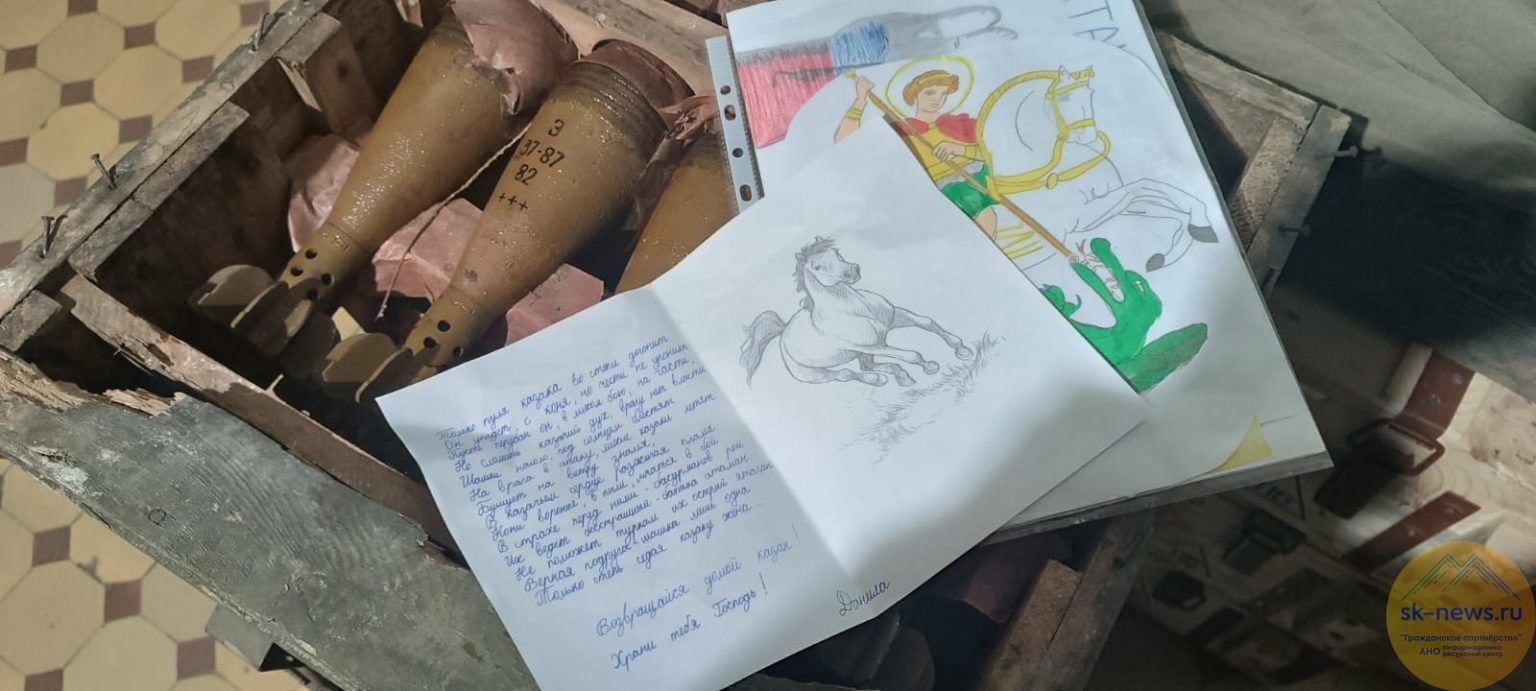 3
37-87
82
+++
СТА
Только пуля казака во степи догонит
Он упадёт с коня, но чести не уронит
Пусть порубан он, в лихом бою, на части,
Но сломить казачий дух, врагу нет власти
Шашки наголо, под солнцем блестят
На врага в атаку, лихие казаки летят
Бушует на ветру знамя,
В казачьем сердце разжигая пламя
Кони вороные, в пыли, мчатся в бой,
В страхе перед ними - басурманов рой
Их ведет бесстрашный - батька атаман
Не поможет туркам их острый ятаган
Верная подруга - шашка лишь одна
Только степь седая казаку жена...
Возвращайся домой казак!
Храни тебя Господь!
Данила
sk-news.ru
"Гражданское партнёрство"
АНО Информационно-
ресурсный центр